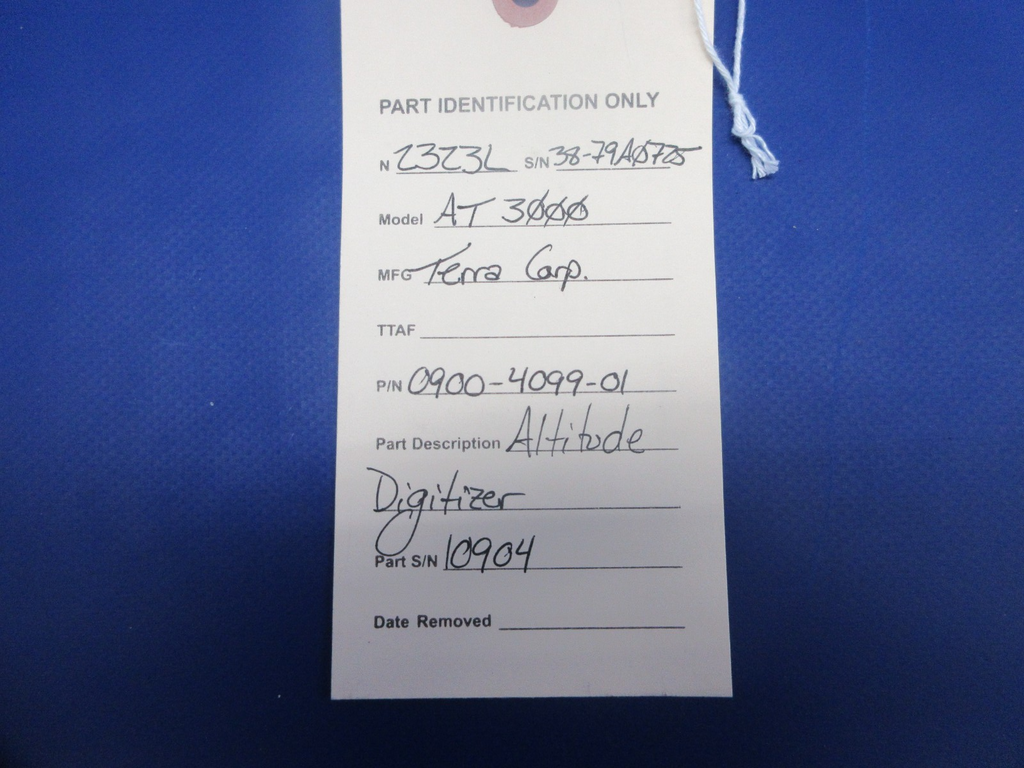 PART IDENTIFICATION ONLY
N 2323L S/N 38-79A0725
Model AT 3000
MFG Terra Corp.
TTAF
P/N 0900-4099-01
Part Description Altitude
Digitizer
Part S/N 10904
Date Removed